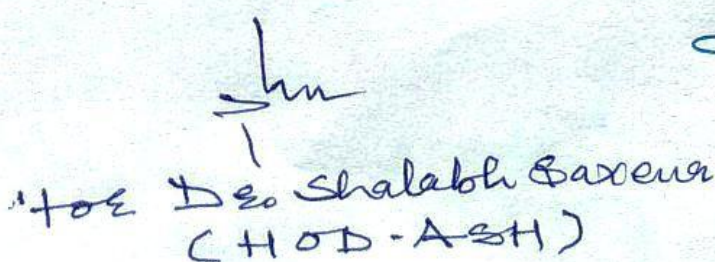 for Dr. Shalabh Saxena
(HOD-ASH)